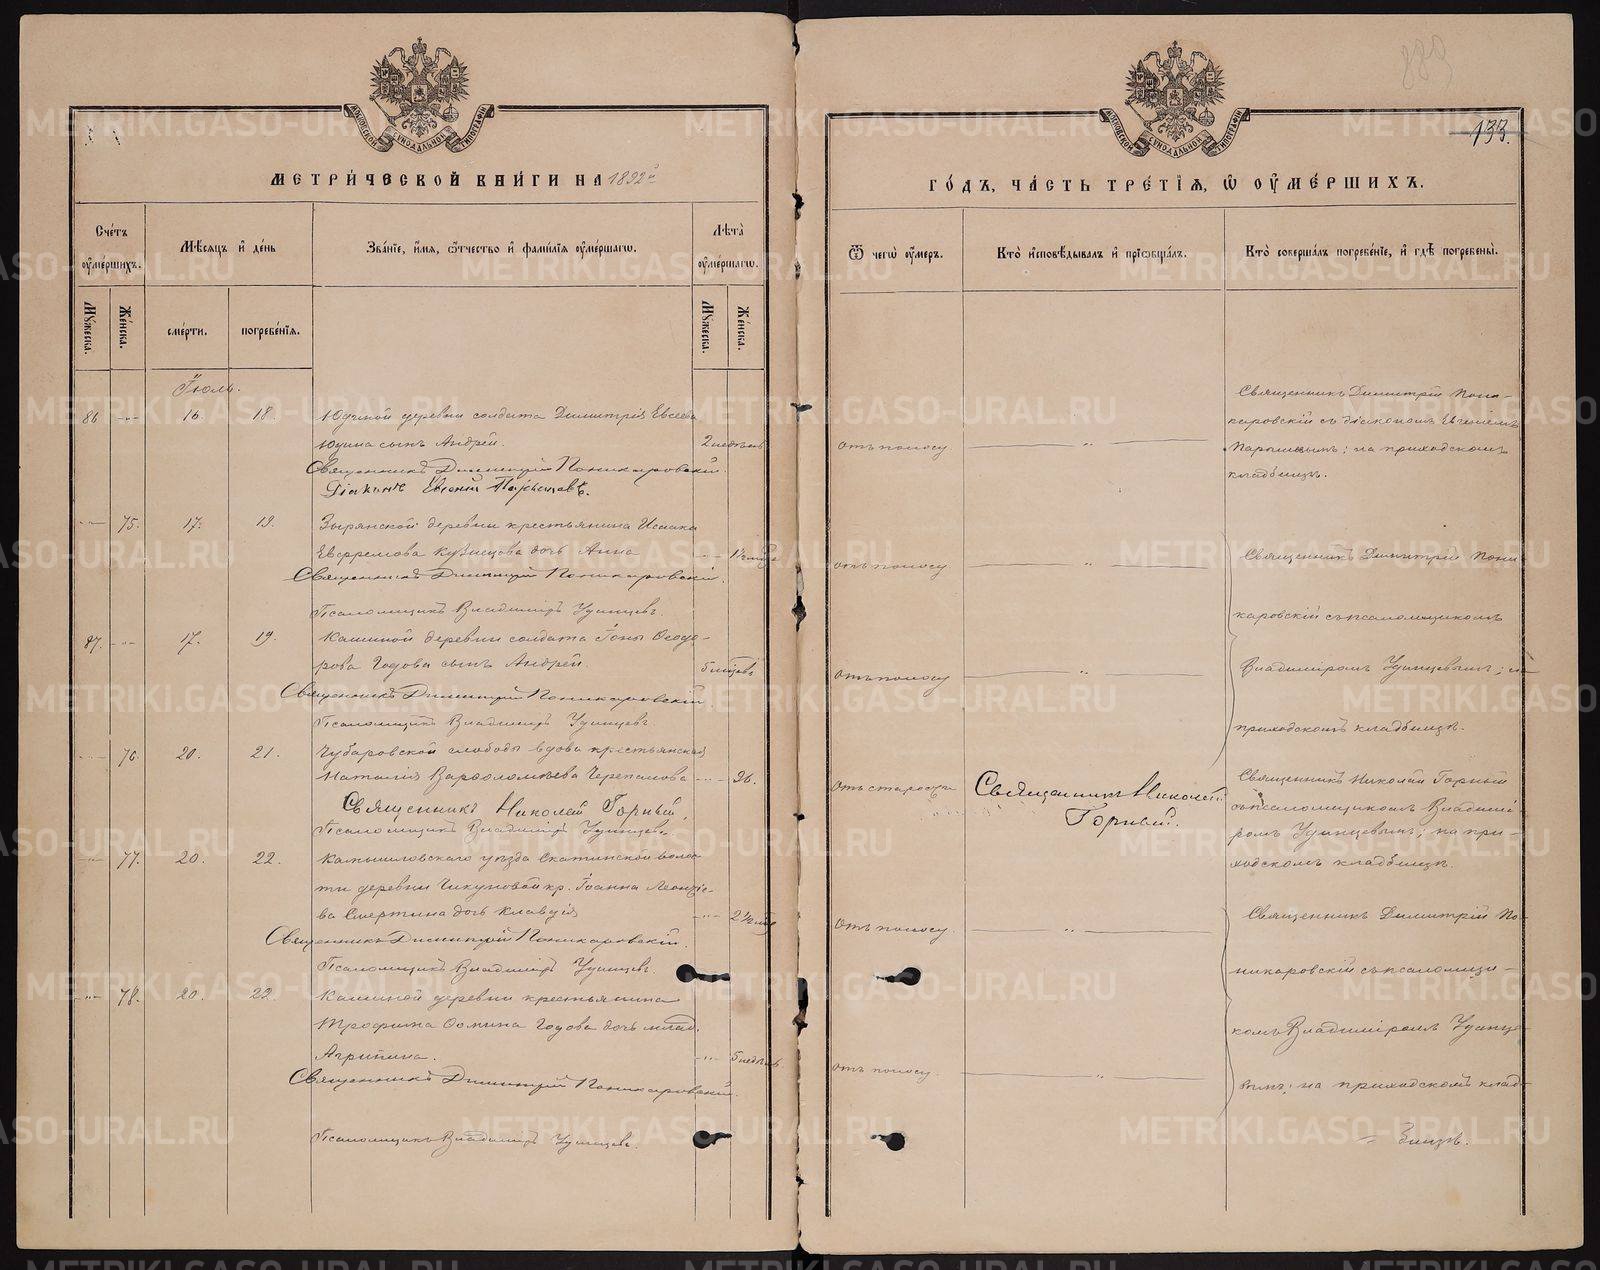 МОСКОВСКОЙ СУНОДАЛЬНОЙ ТИПОГРАФІИ
МЕТРИ́ЧЕСКОЙ КНИ́ГИ НА 1892й
Сче́тъ ѹ҆ме́ршихъ.
Мѣ́сяцъ и҆ де́нь
Зва́нїе, и҆́мя, ѻ҆́тчество и҆ фами́лїя ѹ҆ме́ршагѡ.
Лѣ́та ѹ҆ме́ршагѡ.
Мꙋ́жеска.
Же́нска.
сме́рти.
погребе́нїя.
Мꙋ́жеска.
Же́нска.
Іюль.
86 -"- 16. 18. Юдиной деревни солдата Димитрія Евсеева
Юдина сынъ Андрей. 2 недѣль
Священникъ Димитрій Поникаровскій.
Діаконъ Евгеній Парышевъ.
-"- 75. 17. 19. Зырянской деревни крестьянина Исаака
Евфремова Кузнецова дочь Анна -"- 1½ года
Священникъ Димитрій Поникаровскій.
Псаломщикъ Владиміръ Удинцевъ.
87. -"- 17. 19. Калиной деревни солдата Іоны Ѳеодо-
рова Годова сынъ Андрей. 5 мѣсяцевъ
Священникъ Димитрій Поникаровскій.
Псаломщикъ Владиміръ Удинцевъ
-"- 76. 20. 21. Чубаровской слободы вдова крестьянская
Наталія Варѳоломѣева Черепанова -"- 96.
Священникъ Николай Горный.
Псаломщикъ Владиміръ Удинцевъ
-"- 77. 20. 22. Камышловскаго уѣзда Скатинской волос-
ти деревни Чикуновой кр. Іоанна Леонтіе-
ва Смертина дочь Клавдія -"- 2½ года
Священникъ Димитрій Поникаровскій.
Псаломщикъ Владиміръ Удинцевъ
-"- 78. 20. 22. Калиной деревни крестьянина
Трофима Ѳомина Годова дочь млад.
Агрипина. -"- 5 недѣль
Священникъ Димитрій Поникаровскій.
Псаломщикъ Владиміръ Удинцевъ.
889
133.
МОСКОВСКОЙ СУНОДАЛЬНОЙ ТИПОГРАФІИ
ГО́ДЪ, ЧА́СТЬ ТРЕ́ТЇЯ, Ѡ҆ ОУ҆МЕ́РШИХЪ.
Ѿ чегѡ̀ ѹ҆́меръ.
Кто̀ и҆сповѣ́дывалъ и҆ прїѻбща́лъ.
Кто̀ соверша́лъ погребе́нїе, и҆ гдѣ̀ погребены̀.
Священникъ Димитрій Пони-
каровскій съ діакономъ Евгеніемъ
отъ поносу — " — Парышевымъ; на приходскомъ
кладбищѣ.
отъ поносу — " — Священникъ Димитрій Пони
каровскій съ псаломщикомъ
отъ поносу — " — Владиміромъ Удинцевымъ; на
приходскомъ кладбищѣ.
Отъ старости Священникъ Николай Горный. Священникъ Николай Горный
съ псаломщикомъ Владимі-
ромъ Удинцевымъ; на при-
ходскомъ кладбищѣ.
Отъ поносу. — " — Священникъ Димитрій По-
никаровскій съ псаломщи-
комъ Владиміромъ Удинце-
отъ поносу. — " — вымъ; на приходскомъ клад-
= бищѣ.
METRIKI.GASO-URAL.RU